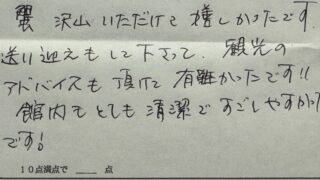 蟹 沢山 いただけて 嬉しかったです。
送り迎えもして下さって、観光の
アドバイスも頂けて 有難かったです!!
館内もとても 清潔ですごしやすかった
です!
10点満点で ___ 点